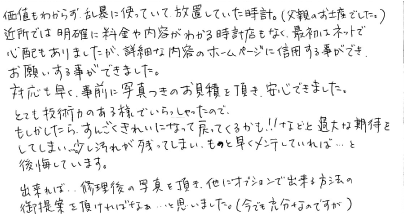 価値もわからず、乱暴に使っていて、放置していた時計。(父親のお土産でした。)
近所では明確に料金や内容がわかる時計店もなく、最初はネットで
心配もありましたが、詳細な内容のホームページに信用する事ができ、
お願いする事ができました。
対応も早く、事前に写真つきのお見積を頂き、安心できました。
とても技術力のある様でいらっしゃったので、
もしかしたら、すんごくきれいになって戻ってくるかも!!などと過大な期待を
してしまい、少し汚れが残ってしまい、もっと早くメンテしていれば…と
後悔しています。
出来れば…修理後の写真を頂き、他にオプションで出来る方法の
御提案を頂ければなぁ…と思いました。(今でも充分なのですが)